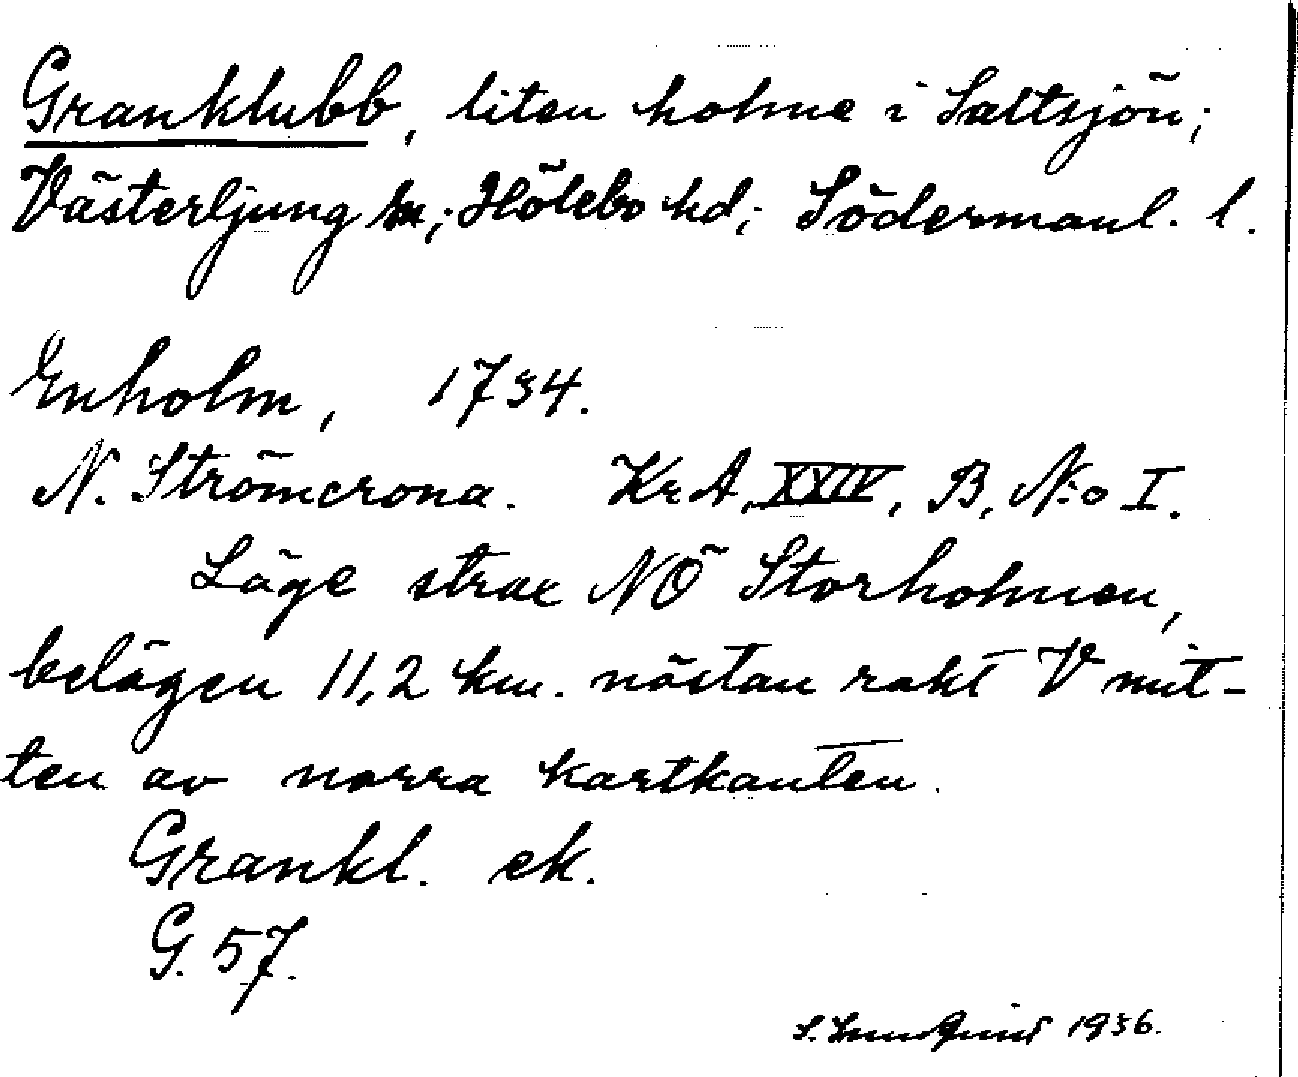 Granklubb, liten holme i Saltsjön;
Västerljung sn; Hölebo hd; Södermanl. l.
Enholm, 1734.
N. Strömcrona. KrA, XXIV, B, N:o I.
Läge strax NÖ Storholmen,
belägen 11,2 km. nästan rakt V mit-
ten av norra kartkanten.
Grankl. ek.
G. 57.
S. Lundquist 1936.